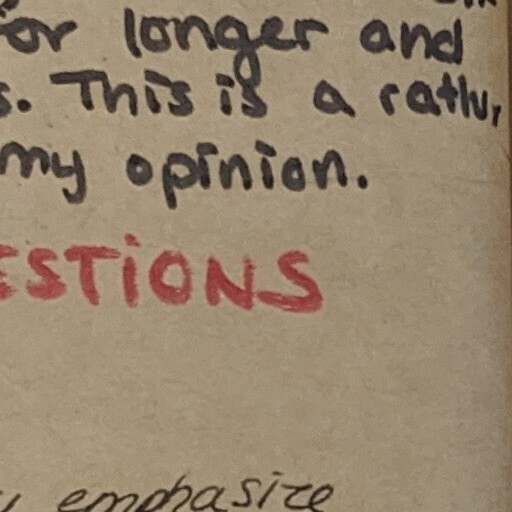 for longer and
s. This is a rather
my opinion.
ESTIONS
emphasize